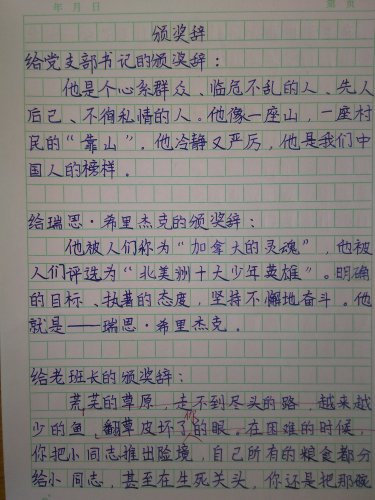 年 月 日 第 页
颁奖辞
给党支部书记的颁奖辞：
他是个心系群众、临危不乱的人、先人
后己、不徇私情的人。他像一座山，一座村
民的“靠山”。他冷静又严厉，他是我们中
国人的榜样。
给瑞恩·希里杰克的颁奖辞：
他被人们称为“加拿大的灵魂”，也被
人们评选为“北美洲十大少年英雄”。明确
的目标、执著的态度，坚持不懈地奋斗。他
就是——瑞恩·希里杰克。
给老班长的颁奖辞：
荒芜的草原，走不到尽头的路，越来越
少的鱼，翻草皮坏了你的眼。在困难的时候，
你把小同志推出险境，自己所有的粮食都分
给小同志，甚至在生死关头，你还是把那碗